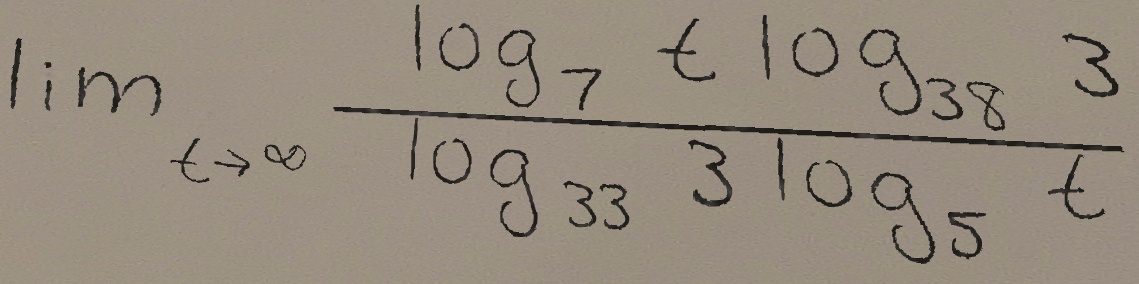 \lim_{t \to \infty} \frac{\log_{7} t \log_{38} 3}{\log_{33} 3 \log_{5} t}